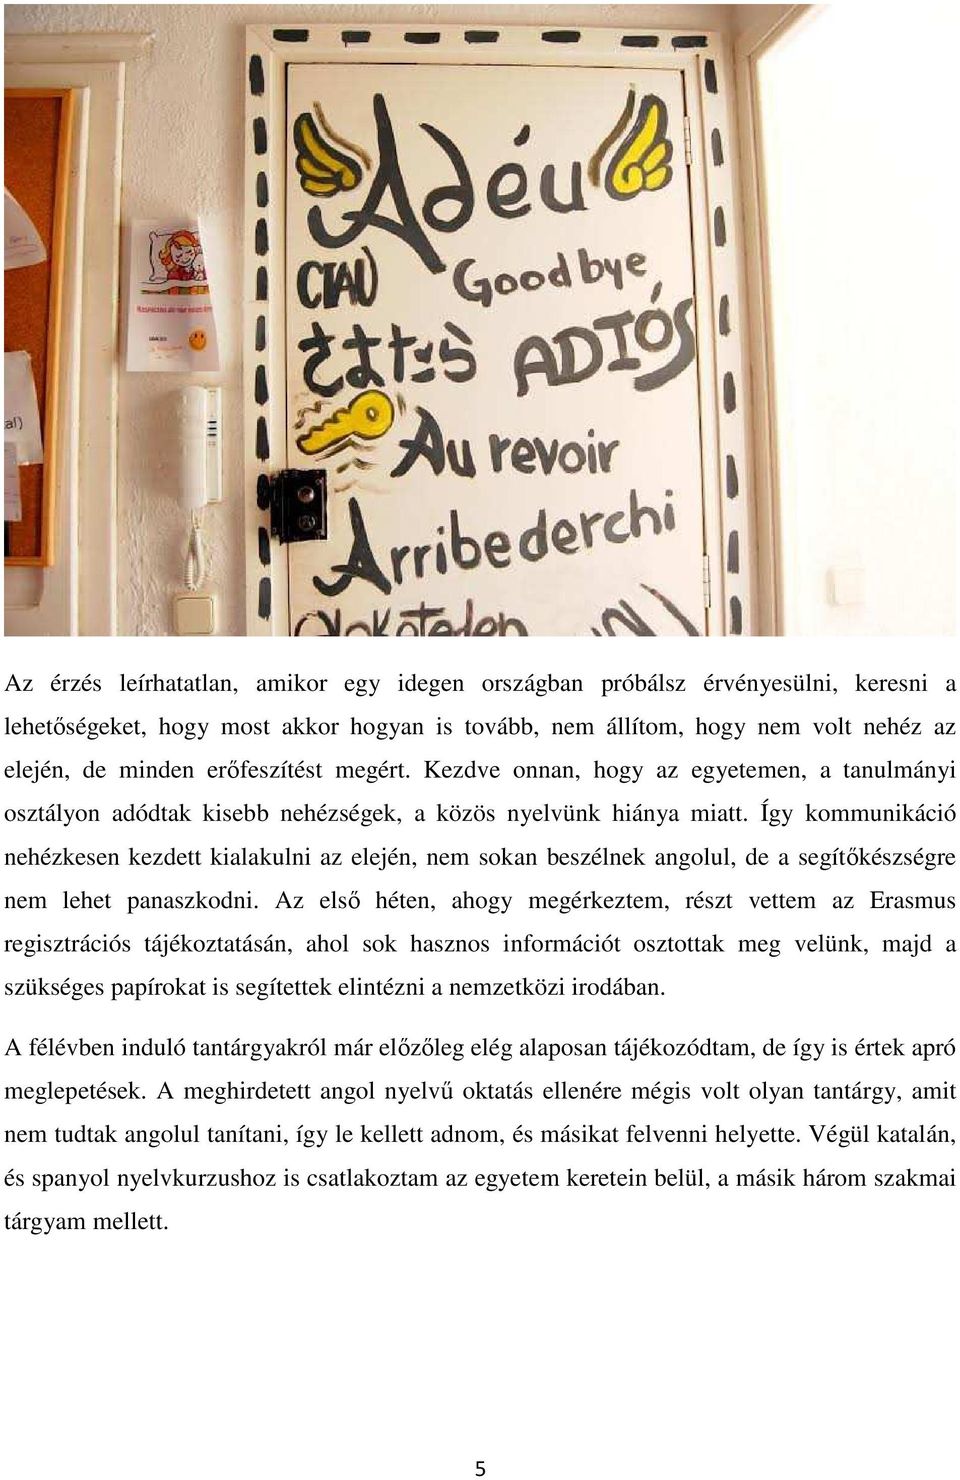 Adéu
CIAO
Goodbye
ADIÓS
Au revoir
Arribederchi
Az érzés leírhatatlan, amikor egy idegen országban próbálsz érvényesülni, keresni a
lehetőségeket, hogy most akkor hogyan is tovább, nem állítom, hogy nem volt nehéz az
elején, de minden erőfeszítést megért. Kezdve onnan, hogy az egyetemen, a tanulmányi
osztályon adódtak kisebb nehézségek, a közös nyelvünk hiánya miatt. Így kommunikáció
nehézkesen kezdett kialakulni az elején, nem sokan beszélnek angolul, de a segítőkészségre
nem lehet panaszkodni. Az első héten, ahogy megérkeztem, részt vettem az Erasmus
regisztrációs tájékoztatásán, ahol sok hasznos információt osztottak meg velünk, majd a
szükséges papírokat is segítettek elintézni a nemzetközi irodában.
A félévben induló tantárgyakról már előzőleg elég alaposan tájékozódtam, de így is értek apró
meglepetések. A meghirdetett angol nyelvű oktatás ellenére mégis volt olyan tantárgy, amit
nem tudtak angolul tanítani, így le kellett adnom, és másikat felvenni helyette. Végül katalán,
és spanyol nyelvkurzushoz is csatlakoztam az egyetem keretein belül, a másik három szakmai
tárgyam mellett.
5